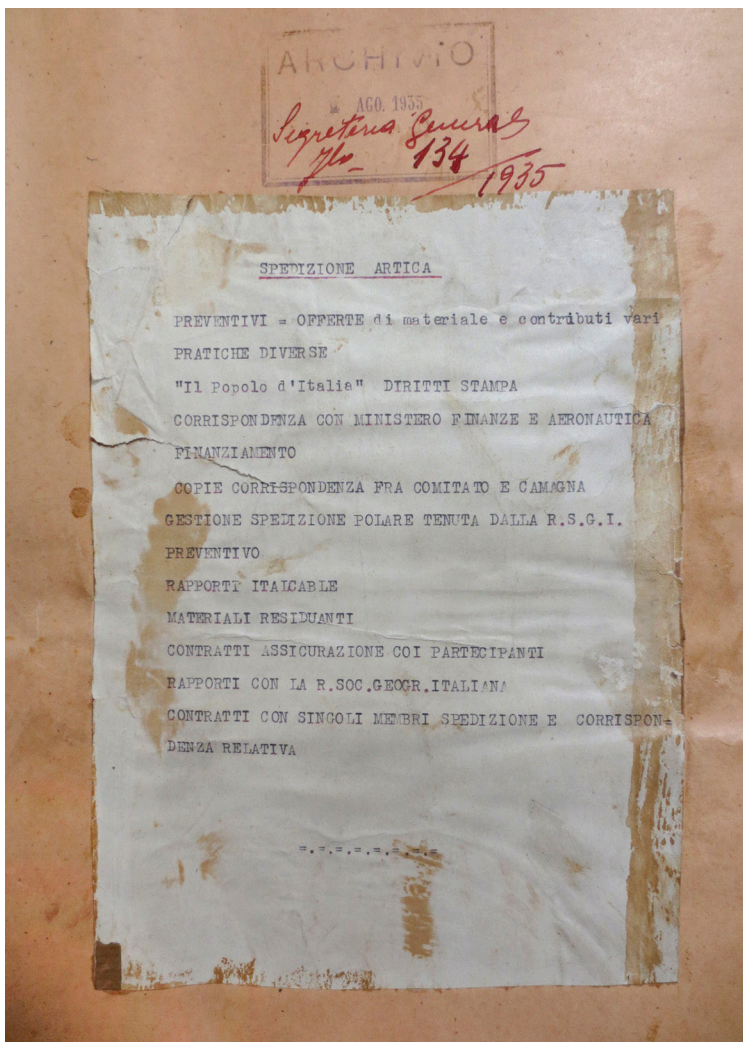 ARCHIVIO
AGO. 1935
Segreteria Generale
134
1935
SPEDIZIONE ARTICA
PREVENTIVI = OFFERTE di materiale e contributi vari
PRATICHE DIVERSE
"Il Popolo d'Italia" DIRITTI STAMPA
CORRISPONDENZA CON MINISTERO FINANZE E AERONAUTICA
FINANZIAMENTO
COPIE CORRISPONDENZA FRA COMITATO E CAMAGNA
GESTIONE SPEDIZIONE POLARE TENUTA DALLA R.S.G.I.
PREVENTIVO
RAPPORTI ITALCABLE
MATERIALI RESIDUANTI
CONTRATTI ASSICURAZIONE COI PARTECIPANTI
RAPPORTI CON LA R.SOC.GEOGR.ITALIANA
CONTRATTI CON SINGOLI MEMBRI SPEDIZIONE E CORRISPON=
DENZA RELATIVA
=.=.=.=.=.=.=.=